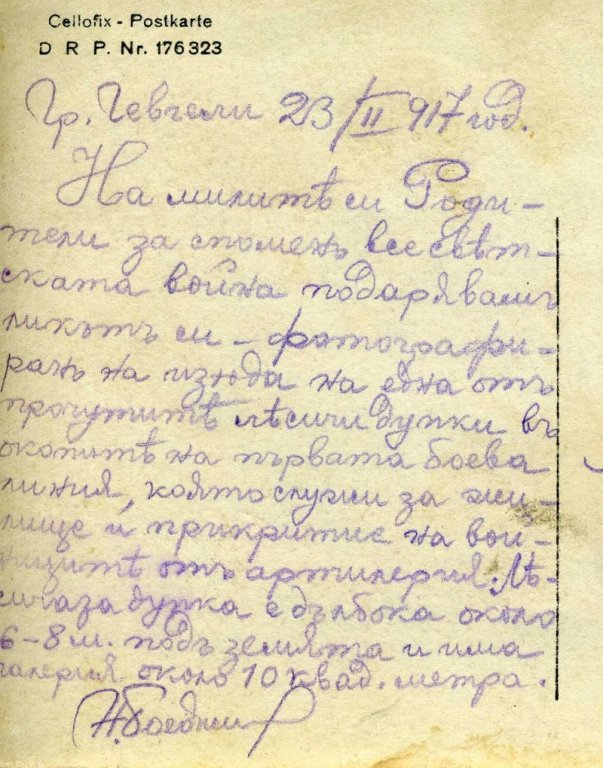 Cellofix - Postkarte
D R P. Nr. 176323
Гр. Гевгели 23/II 917 год.
На милитѣ си Роди-
тели за споменъ всесвѣт-
ската война подарявамъ
ликътъ си - фотографи-
ранъ на изхода на една отъ
прочутитѣ лѣсичи дупки въ
окопитѣ на първата боева
линия, която служи за жи-
лище и прикритие на вои-
ницитѣ отъ артилерия. Лѣ-
сичаза дупка е дълбока около
6-8 м. подъ земята и има
галерия около 10 квад. метра.